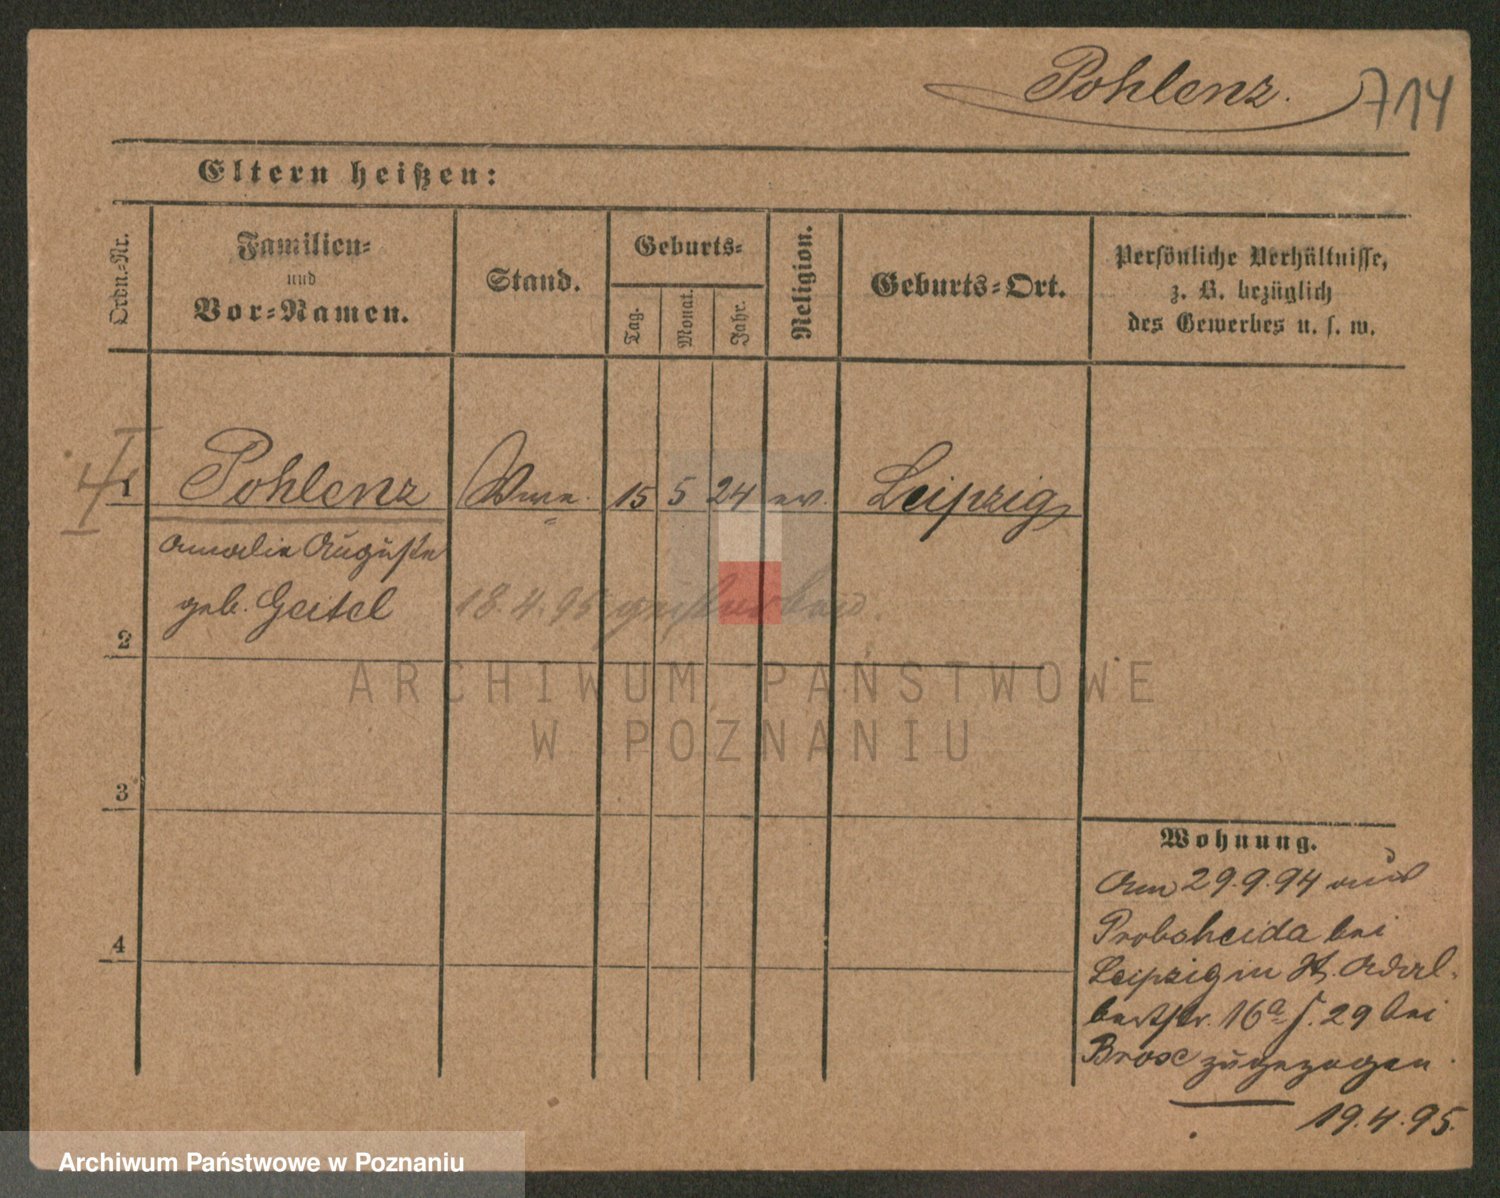 Pohlenz. 714
Eltern heißen:
Ordn.-Nr.
Familien-
und
Vor-Namen.
Stand.
Geburts-
Tag.
Monat.
Jahr.
Religion.
Geburts-Ort.
Persönliche Verhältnisse,
z. B. bezüglich
des Gewerbes u. s. w.
1 Pohlenz Wwe. 15 5 24 ev. Leipzig
Amalie Auguste
geb. Geitel
18.4.95
2
3
4
ARCHIWUM PAŃSTWOWE
W POZNANIU
Wohnung.
Am 29.9.94 aus
Probsheida bei
Leipzig in St. Adal-
bertstr. 16a f. 29 bei
Brose zugezogen.
19.4.95.
Archiwum Państwowe w Poznaniu